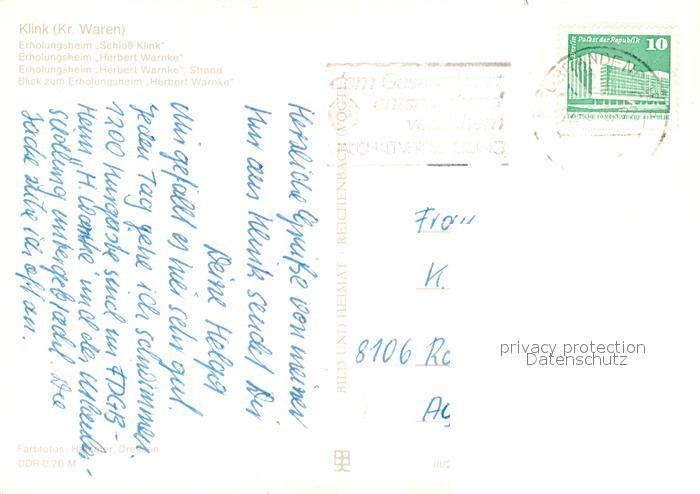 Klink (Kr. Waren)
Erholungsheim „Schloß Klink“
Erholungsheim „Herbert Warnke“
Erholungsheim „Herbert Warnke“, Strand
Blick zum Erholungsheim „Herbert Warnke“
Herzliche Grüße von meiner
Kur aus Klink sendet Dir
Deine Helga
Mir gefällt es hier sehr gut.
Jeden Tag gehe ich schwimmen.
1200 Kurgäste sind im FDGB-
Heim H. Warnke und der Urlauber-
siedlung untergebracht. Die
Jacke ziehe ich oft an.
Farbfotos: Dresden
DDR 0,20 M
BILD UND HEIMAT · REICHENBACH (VOGTL)
III/2
Berlin Palast der Republik
10
DEUTSCHE DEMOKRATISCHE REPUBLIK
Frau
K.
8106 Ra
privacy protection
Datenschutz